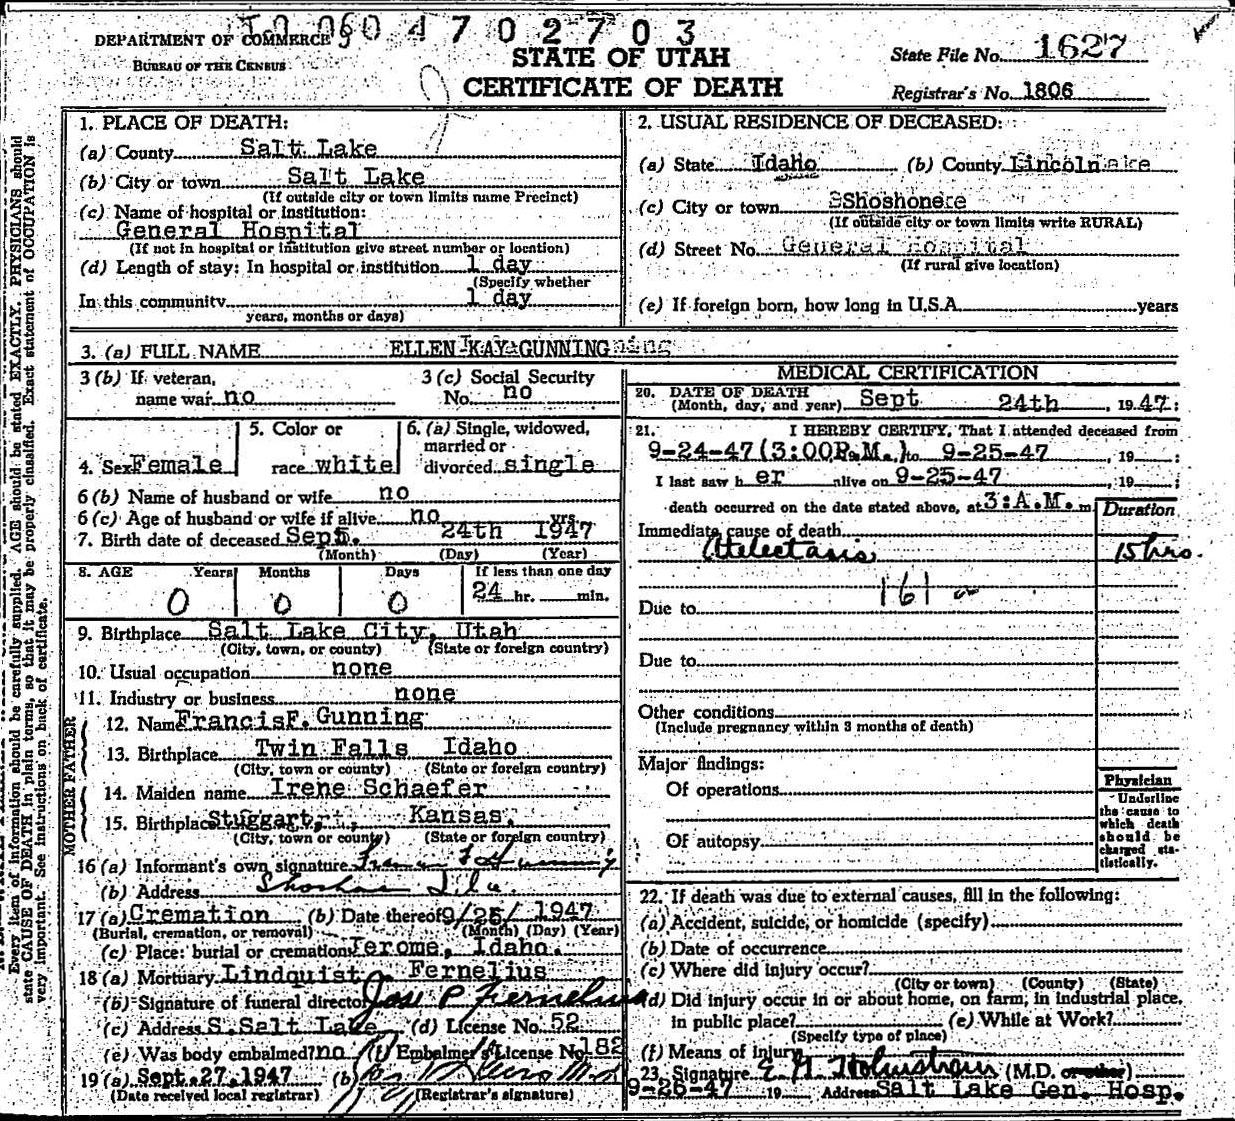 4 7 0 2 7 0 3
DEPARTMENT OF COMMERCE
BUREAU OF THE CENSUS
STATE OF UTAH
CERTIFICATE OF DEATH
State File No. 1627
Registrar's No. 1806
1. PLACE OF DEATH:
(a) County Salt Lake
(b) City or town Salt Lake
(If outside city or town limits name Precinct)
(c) Name of hospital or institution:
General Hospital
(If not in hospital or institution give street number or location)
(d) Length of stay: In hospital or institution 1 day
(Specify whether
In this community 1 day
years, months or days)
2. USUAL RESIDENCE OF DECEASED:
(a) State Idaho (b) County Lincoln
(c) City or town Shoshone
(If outside city or town limits write RURAL)
(d) Street No. General Hospital
(If rural give location)
(e) If foreign born, how long in U.S.A. years
3. (a) FULL NAME ELLEN KAY GUNNING
3 (b) If veteran,
name war no
3 (c) Social Security
No. no
4. Sex Female
5. Color or
race white
6. (a) Single, widowed,
married or
divorced single
6 (b) Name of husband or wife no
6 (c) Age of husband or wife if alive no yrs.
7. Birth date of deceased Sept. 24th 1947
(Month) (Day) (Year)
8. AGE Years Months Days If less than one day
0 0 0 24 hr. min.
9. Birthplace Salt Lake City, Utah
(City, town, or county) (State or foreign country)
10. Usual occupation none
11. Industry or business none
FATHER
12. Name Francis F. Gunning
13. Birthplace Twin Falls Idaho
(City, town or county) (State or foreign country)
MOTHER
14. Maiden name Irene Schaefer
15. Birthplace Stuggart, Kansas.
(City, town or county) (State or foreign country)
16 (a) Informant's own signature Francis F Gunning
(b) Address Shoshone Ida.
17 (a) Cremation (b) Date thereof 9/25/ 1947
(Burial, cremation, or removal) (Month) (Day) (Year)
(c) Place: burial or cremation Jerome, Idaho.
18 (a) Mortuary Lindquist Fernelius
(b) Signature of funeral director Jos P Fernelius
(c) Address S. Salt Lake (d) License No. 52
(e) Was body embalmed? no (f) Embalmer's License No. 182
19 (a) Sept. 27, 1947 (b)
(Date received local registrar) (Registrar's signature)
MEDICAL CERTIFICATION
20. DATE OF DEATH
(Month, day, and year) Sept 24th, 1947:
21. I HEREBY CERTIFY, That I attended deceased from
9-24-47 (3:00P.M.) to 9-25-47, 19 ;
I last saw h er alive on 9-25-47, 19 ;
death occurred on the date stated above, at 3:A.M. m.
Duration
Immediate cause of death
Atelectasis 15 hrs.
161 a
Due to
Due to
Other conditions
(Include pregnancy within 3 months of death)
Major findings:
Of operations
Of autopsy
Physician
Underline
the cause to
which death
should be
charged sta-
tistically.
22. If death was due to external causes, fill in the following:
(a) Accident, suicide, or homicide (specify)
(b) Date of occurrence
(c) Where did injury occur?
(City or town) (County) (State)
(d) Did injury occur in or about home, on farm, in industrial place,
in public place? (e) While at Work?
(Specify type of place)
(f) Means of injury
23. Signature E. G. Holmstrom (M.D. or other)
9-26-47 19 Address Salt Lake Gen. Hosp.
Every item of information should be carefully supplied. AGE should be stated EXACTLY. PHYSICIANS should
state CAUSE OF DEATH in plain terms, so that it may be properly classified. Exact statement of OCCUPATION is
very important. See instructions on back of certificate.